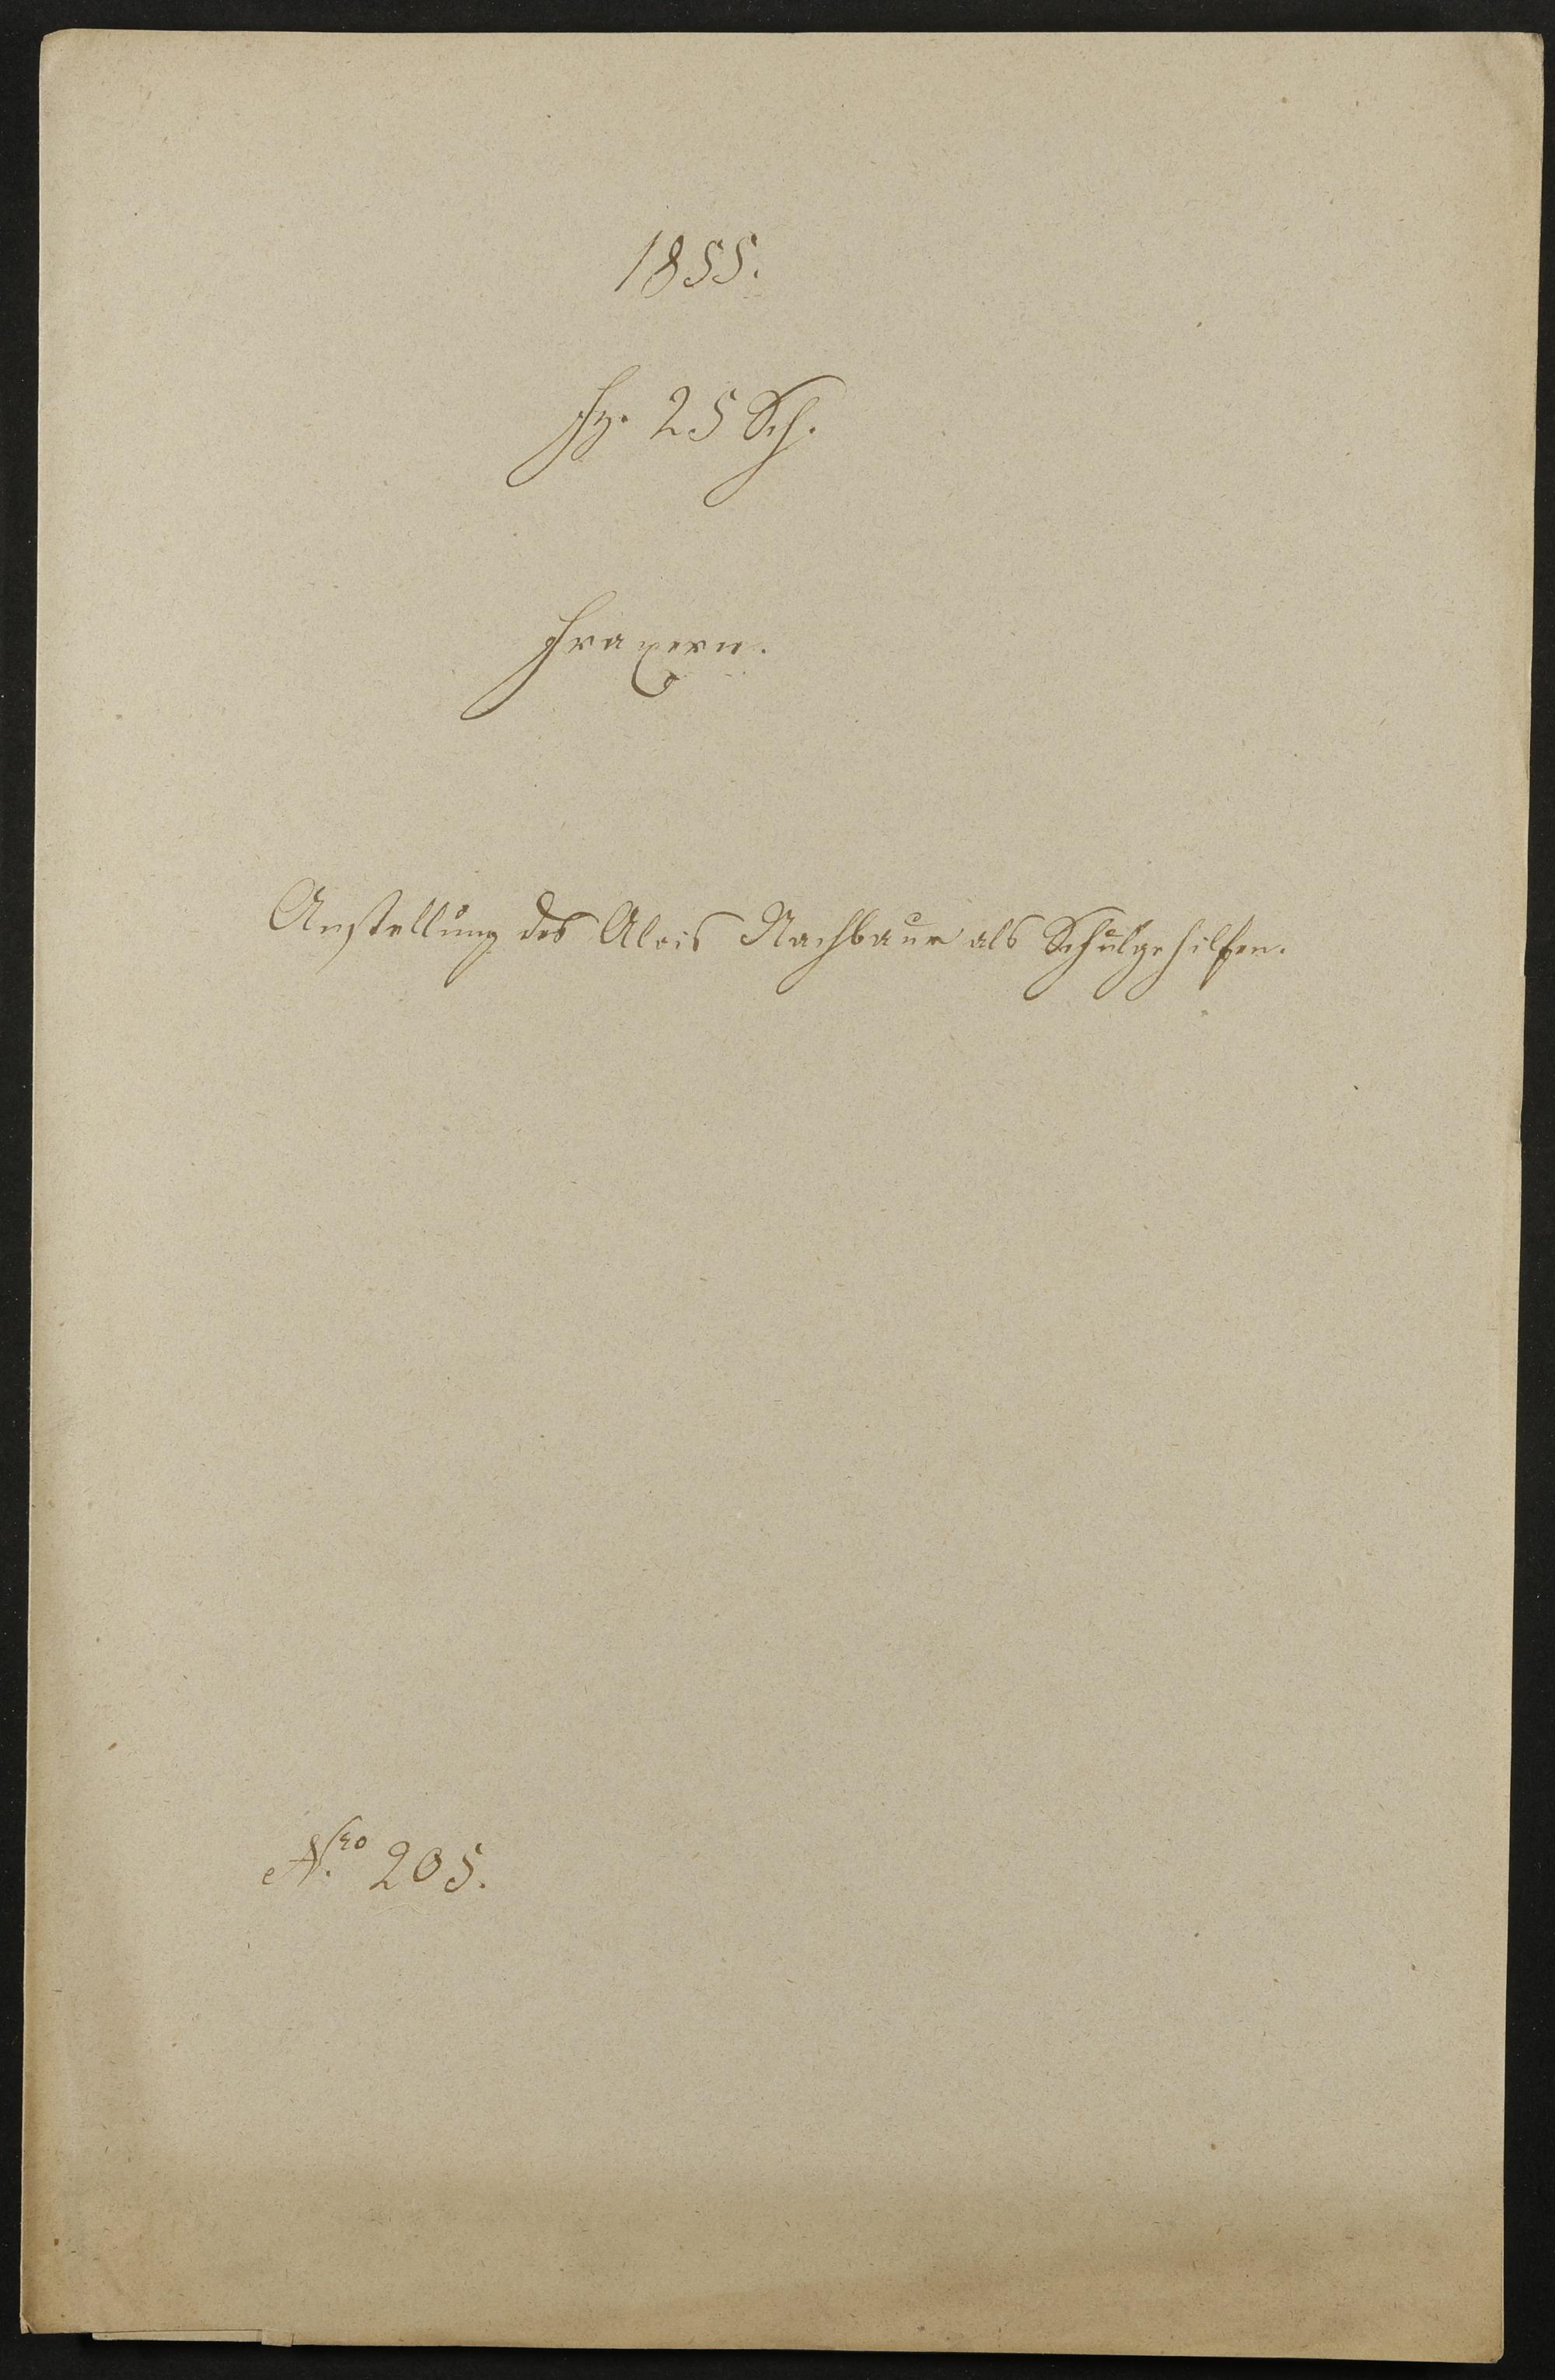 1855.
Fz. 25 Sch.
Fraxern.
Anstellung des Alois Nachbaur als Schulgehilfen.
Nro 205.